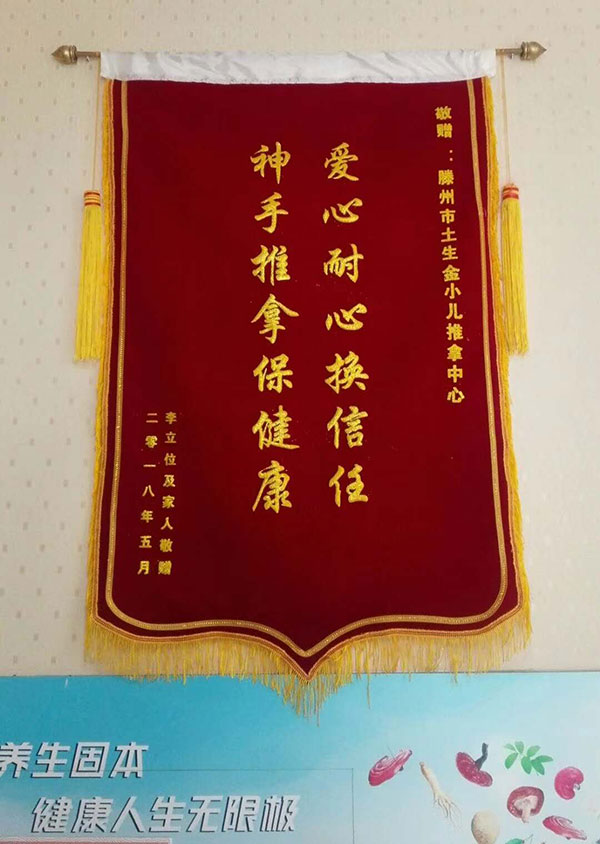 敬赠：滕州市土生金小儿推拿中心
爱心耐心换信任
神手推拿保健康
李立位及家人敬赠
二零一八年五月
养生固本
健康人生无限极